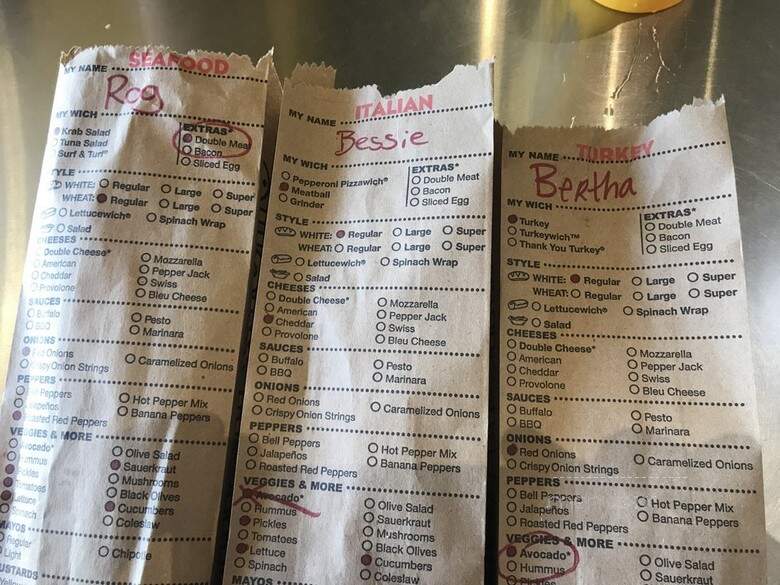 SEAFOOD
MY NAME
Rog
MY WICH
Krab Salad
Tuna Salad
Surf & Turf®
EXTRAS*
Double Meat
Bacon
Sliced Egg
STYLE
WHITE: Regular Large Super
WHEAT: Regular Large Super
Lettucewich® Spinach Wrap
Salad
CHEESES
Double Cheese*
American
Cheddar
Provolone
Mozzarella
Pepper Jack
Swiss
Bleu Cheese
SAUCES
Buffalo
BBQ
Pesto
Marinara
ONIONS
Red Onions
Crispy Onion Strings
Caramelized Onions
PEPPERS
Bell Peppers
Jalapeños
Roasted Red Peppers
Hot Pepper Mix
Banana Peppers
VEGGIES & MORE
Avocado*
Hummus
Pickles
Tomatoes
Lettuce
Spinach
Olive Salad
Sauerkraut
Mushrooms
Black Olives
Cucumbers
Coleslaw
MAYOS
Regular
Light
Chipotle
MUSTARDS
Yellow
ITALIAN
MY NAME
Bessie
MY WICH
Pepperoni Pizzawich®
Meatball
Grinder
EXTRAS*
Double Meat
Bacon
Sliced Egg
STYLE
WHITE: Regular Large Super
WHEAT: Regular Large Super
Lettucewich® Spinach Wrap
Salad
CHEESES
Double Cheese*
American
Cheddar
Provolone
Mozzarella
Pepper Jack
Swiss
Bleu Cheese
SAUCES
Buffalo
BBQ
Pesto
Marinara
ONIONS
Red Onions
Crispy Onion Strings
Caramelized Onions
PEPPERS
Bell Peppers
Jalapeños
Roasted Red Peppers
Hot Pepper Mix
Banana Peppers
VEGGIES & MORE
Avocado*
Hummus
Pickles
Tomatoes
Lettuce
Spinach
Olive Salad
Sauerkraut
Mushrooms
Black Olives
Cucumbers
Coleslaw
MAYOS
TURKEY
MY NAME
Bertha
MY WICH
Turkey
Turkeywich™
Thank You Turkey®
EXTRAS*
Double Meat
Bacon
Sliced Egg
STYLE
WHITE: Regular Large Super
WHEAT: Regular Large Super
Lettucewich® Spinach Wrap
Salad
CHEESES
Double Cheese*
American
Cheddar
Provolone
Mozzarella
Pepper Jack
Swiss
Bleu Cheese
SAUCES
Buffalo
BBQ
Pesto
Marinara
ONIONS
Red Onions
Crispy Onion Strings
Caramelized Onions
PEPPERS
Bell Peppers
Jalapeños
Roasted Red Peppers
Hot Pepper Mix
Banana Peppers
VEGGIES & MORE
Avocado*
Hummus
Pickles
Olive Salad
Sauerkraut